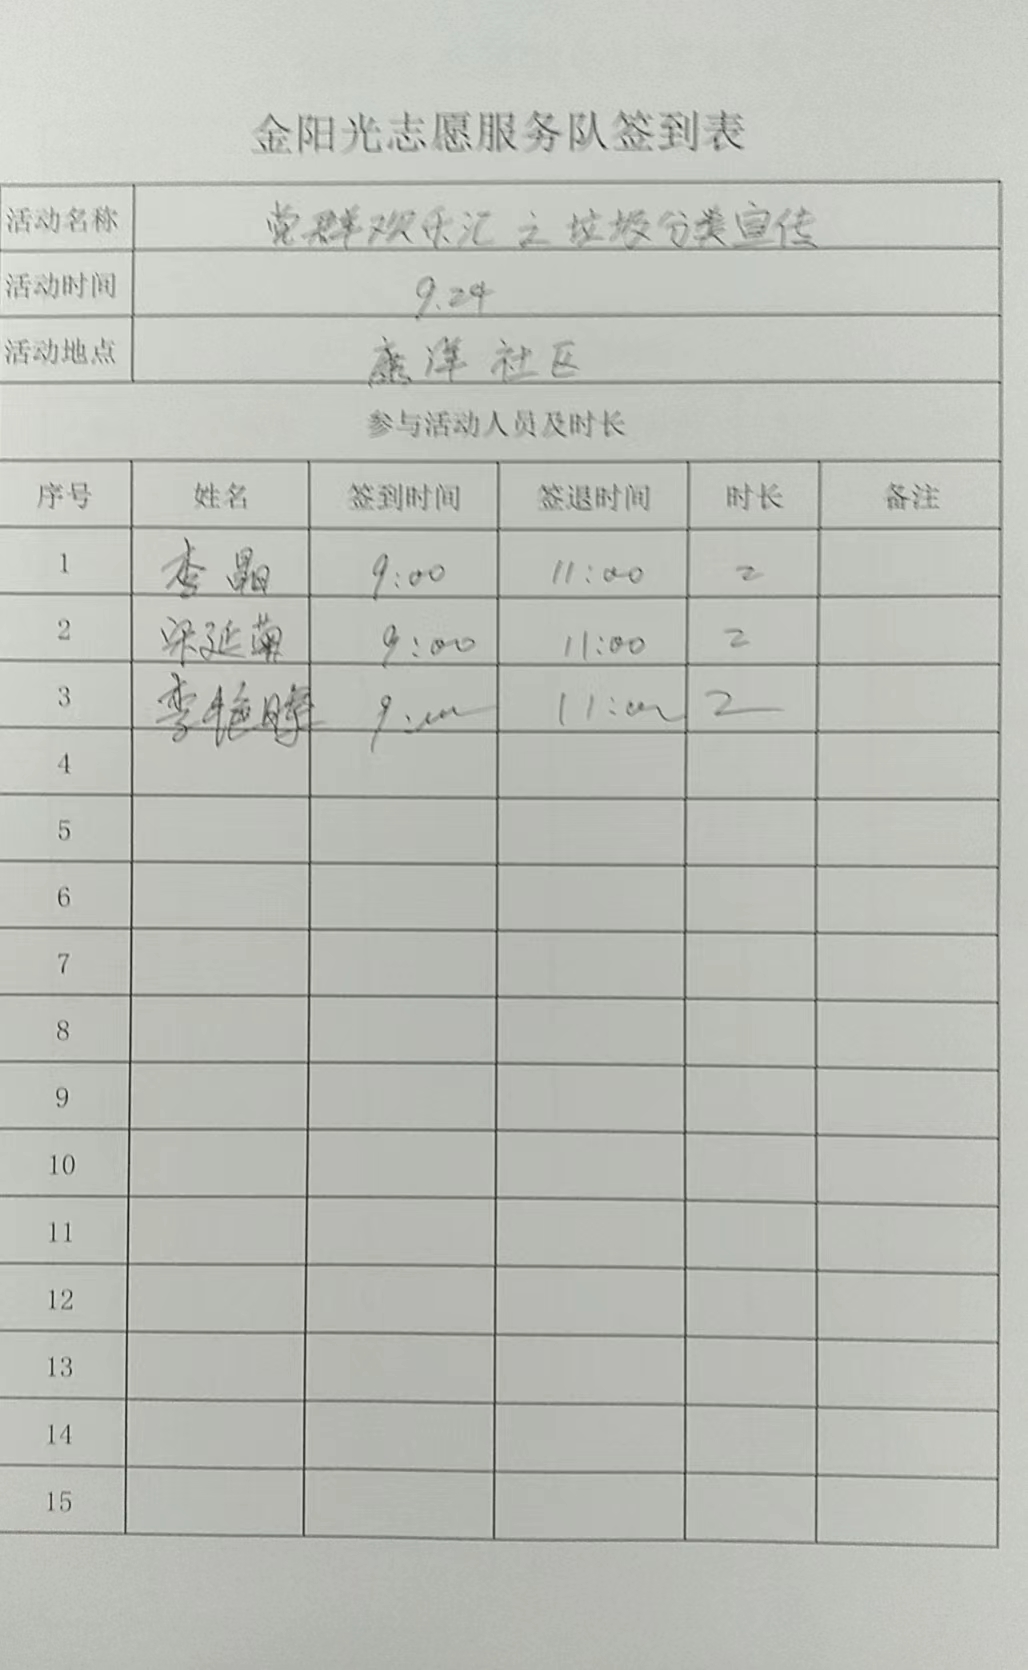 金阳光志愿服务队签到表
活动名称 党群欢乐汇之垃圾分类宣传
活动时间 9.24
活动地点 康洋社区
参与活动人员及时长
序号 姓名 签到时间 签退时间 时长 备注
1 李晶 9:00 11:00 2
2 宋延菊 9:00 11:00 2
3 李艳晖 9:00 11:00 2
4
5
6
7
8
9
10
11
12
13
14
15